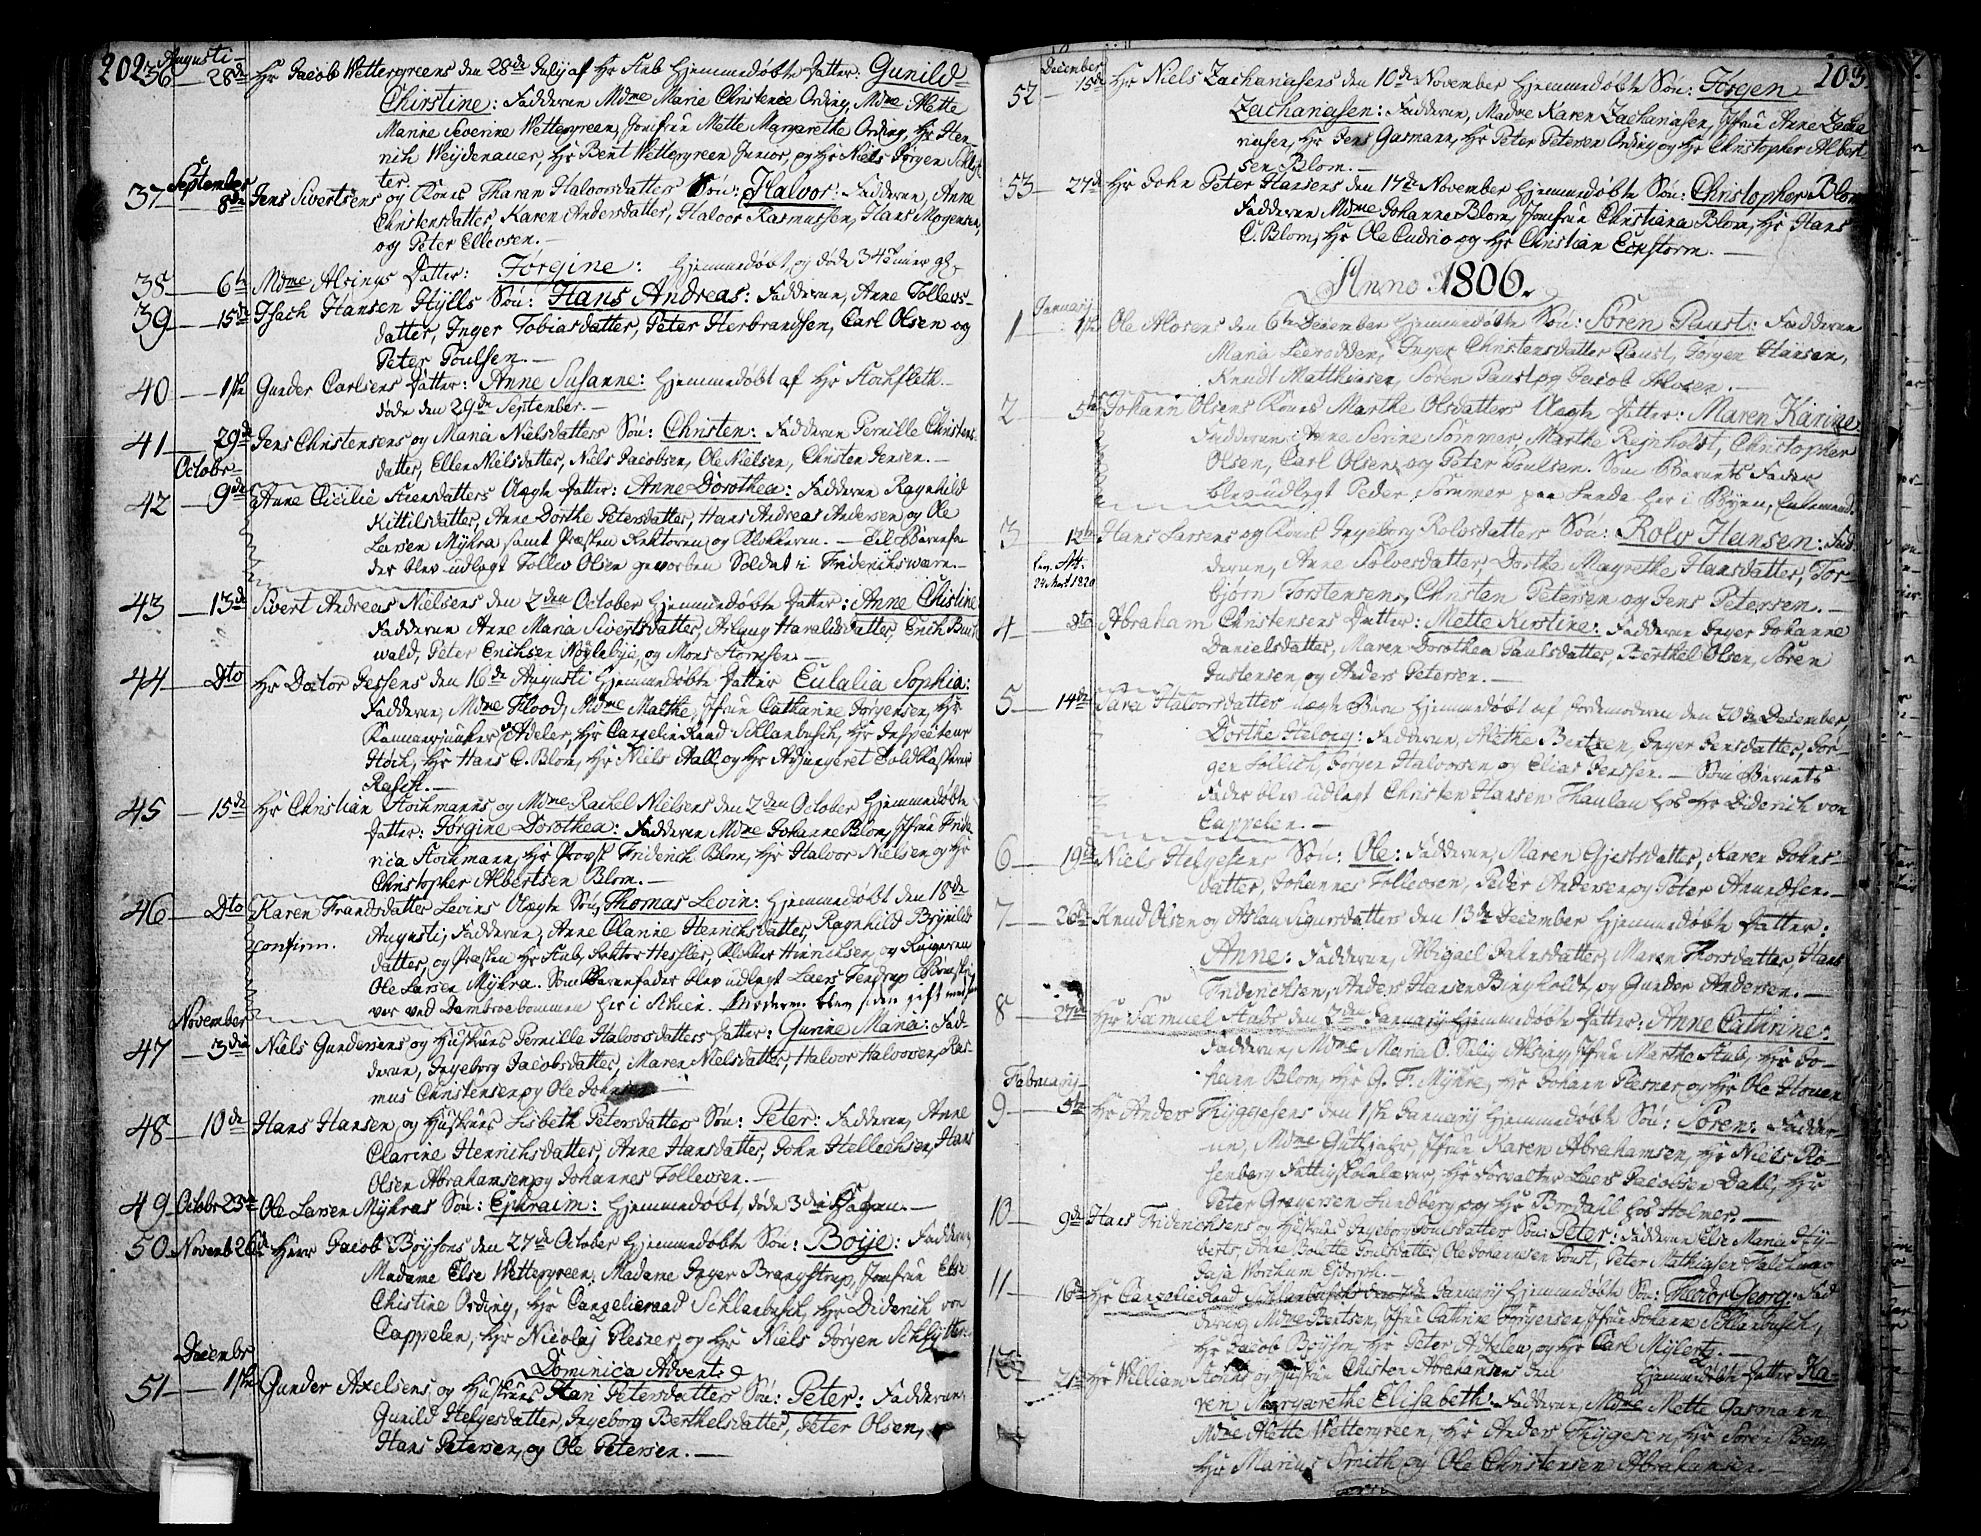 202
Augusti
36 — 28de Hr Jacob Wettergreens den 28de July af Hr Stub Hjemmedøbte Datter: Gunild
Chirstine: Fadderne Mdme Marie Christence Ording, Mdme Mette
Marine Severine Wettergreen, Jomfrue Mette Margarethe Ording, Hr Hen-
rich Weydenauer, Hr Bent Wettergreen Junior, og Hr Niels Jørgen Schlyt
ter.
September
37 — 8de Jens Sivertsens og Kone Tharan Halvorsdatters Søn: Halvor: Fadderne, Anne
Christensdatter, Karen Andersdatter, Halvor Rasmussen, Hans Mogensen,
og Peter Ellevsen. —
38 — 6te Mdme Alsings Datter: Jørgine: Hjemmedøbt, og døde 3 4 Timer
39 — 15de Isach Hansen Hylls Søn: Hans Andreas: Fadderne, Anne Tollevs-
datter, Inger Tobiasdatter, Peter Herbrandsen, Carl Olsen og
Peter Poulsen. —
40 — 1ste Gunder Carlsens Datter: Anne Susanne: Hjemmedøbt af Hr Stochfleth —
døde den 29de September. —
41 — 29de Jens Christensens og Maria Nielsdatters Søn: Christen: Fadderne Pernille Christens-
datter, Ellen Nielsdatter, Niels Jacobsen, Ole Nielsen, Christen Jensen. —
Octobr
42 — 9de Anne Cicilie Steensdatters Uægte Datter: Anne Dorothea: Fadderne Ragnhild
Kittilsdatter, Anne Dorthe Petersdatter, Hans Andreas Andersen og Ole
Larsen Mykra samt Præsten Rektoren og Klokkeren. — Til Barnefa-
der blev udlagt Tollev Olsen geworben Soldat i Friderichsværn. —
43 — 13de Sivert Andreas Nielsens den 2den October Hjemmedøbte Datter: Anne Chistine
Fadderne Anne Maria Sivertsdatter, Aslaug Haraldsdatter, Erich Bus-
wald, Peter Erichsen Noglebye, og Mons Stornsen —
44 — Dto Hr Doctor Jessens den 16de Augusti Hjemmedøbte Datter Eulalia Sophia:
Fadderne, Mdme Flood, Mdme Malthe, Jfrue Catharine Jørgensen, Hr
Kammerjunker Adeler, Hr Cancelie Raad Schlanbusch, Hr Inspecteur
Hoch, Hr Hans C. Blom, Hr Niels Aall og Hr Adjungeret Toldkasserer
Rasch. —
45 — 15de Hr Christian Stochmanns og Mdme Rachel Nielsens den 2den October Hjemmedøbte
Datter: Jørgine Dorothea: Fadderne Mdme Johanne Blom, Jfrue Fride-
rica Stochmann, Hr Provst Friderich Blom, Hr Halvor Nielsen og Hr
Christopher Albertsen Blom. —
46 — Dto Karen Frandsdatter Levins Uægte Søn, Thomas Levin: Hjemmedøbt den 18de
confirm. Augusti, Fadderne, Anne Olanne Henrichsdatter, Ragnhild Brynilds
datter, og Præsten Hr Stub, Rektor Hessler, Klokker Hinrichsen, og Ringeren
Ole Larsen Mykra. Som Barnefader blev udlagt Laers Tendrup
ver ved Dambroebommen her i Schien. Moderen blev siden gift med
November
47 — 3die Niels Gundersens og Hustrues Pernille Halvorsdatters Datter: Gurine Maria: Fad-
derne, Ingeborg Jacobsdatter, Maren Nielsdatter, Halvor Halvorsen, Ras-
mus Christensen og Ole Johnsen —
48 — 10de Hans Hansen, og Hustrues Lisbeth Petersdatters Søn: Peter: Fadderne, Anne
Clarine Henrichsdatter, Anne Hansdatter, John Hellechsen, Hans
Olsen Abrahamsen og Johannes Tollevsen. —
49 Octobr 23de Ole Larsen Mykras Søn: Ephraim: Hjemmedøbt, døde 3die Dagen. —
50. Novembr 26de Herr Jacob Boysens den 27de October Hjemmedøbte Søn: Boije: Fadderne
Madame Else Wettergreen, Madame Inger Brangstrup, Jomfrue Else
Chistine Ording, Hr Cancelieraad Schlanbusch, Hr Diderich von
Cappelen, Hr Nicolaj Plesner, og Hr Niels Jørgen Schlytter.
Decembr
Dominica Advent.
51 — 1ste Gunder Axelsens og Hustrues Kari Petersdatters Søn: Peter: Fadderne
Gunild Helgesdatter, Ingeborg Berthelsdatter, Peter Olsen,
Hans Petersen, og Ole Petersen. —
203
December
52 — 15de Hr Niels Zachariasens den 10de November Hjemmedøbte Søn: Jørgen
Zachariasen: Fadderne, Madme Karen Zachariasen, Jfrue Anne Zacha
riasen, Hr Jens Gasmann, Hr Peter Petersen Ording og Hr Christopher Albert
sen Blom. —
53 — 27de Hr John Peter Hansens den 17de November Hjemmedøbte Søn: Christopher Blom
Fadderne Mdme Johanne Blom, Jomfrue Christiana Blom, Hr Hans
C. Blom, Hr Ole Cudrio og Hr Christian Erxstorm. —
Anno 1806.
January
1 — 1ste Ole Mosens den 6te December Hjemmedøbte Søn: Søren Paust: Fadderne
Maria Leerodden, Inger Christensdatter Paust, Jørgen Hansen,
Knudt Matthiesen, Søren Paust og Jacob Mosen. —
2 — 5te Johann Olsens Kones Marthe Olsdatters Uægte Datter: Maren Karine
Fadderne: Anne Serine Sommer, Marthe Reinholdt, Christopher
Olsen, Carl Olsen og Peter Poulsen. Som Barnets Fader
blev udlagt Peder Sommer paa Lunda her i Byen, Enkemand.
3 — 12te Hans Larsens og Kones Ingeborg Rolvsdatters Søn: Rolv Hansen: Fad-
lev. Att. derne, Anne Solvesdatter, Dorthe Magrethe Hansdatter, Tor-
1820 bjørn Torstensen, Christen Petersen og Jens Petersen. —
4 — Dto Abraham Christensens Datter: Mette Kirstine: Fadderne Inger Johanne
Danielsdatter, Maren Dorothea Paulsdatter, Berthel Olsen, Søren
Justensen, og Anders Petersen. —
5 — 14de Sara Halvorsdatters uægte Barn Hjemmedøbt af Jordemoderen den 20de December
Dorthe Helvig: Fadderne, Methe Bentzen, Inger Jensdatter, Jør-
gen Lollich, Jørgen Halvorsen og Elias Jenssen. — Som Barnets
Fader blev udlagt Christen Hansen Thaulau hos Hr Diderich von
Cappelen. —
6 — 19de Niels Helgesens Søn: Ole: Fadderne, Maren Gjertsdatter, Karen Johns-
datter, Johannes Tollevsen, Peder Andersen og Peter Amundsen. —
7 — 26de Knud Olsen og Aslau Sigursdatters den 13de December Hjemmedøbte Datter:
Anne: Fadderne, Abigael Jahnsdatter, Maren Thorsdatter, Hans
Friderichsen, Anders Hansen Bingholdt, og Gunder Andersen. —
8 — 27de Hr Samuel Stubs den 2den January Hjemmedøbte Datter: Anne Cathrine:
Fadderne, Mdme Maria O. Salig Alsing, Jfrue Marthe Stub, Hr Jo-
hann Blom, Hr G. F. Mykre, Hr Johann Plesner og Hr Ole Hoven
February
9 — 5te Hr Anders Thyggesens den 1ste January Hjemmedøbte Søn: Søren: Fadder-
ne, Mdme Guthjahr, Jfrue Karen Abrahamsen, Hr Niels Ro-
senberg Fattig Skolelærer, Hr Forvalter Laers Jacobsen Dahl, Hr
Peter Gregersen Lundberg og Hr Bordahl hos Holmer. —
10 — 9de Hans Friderichsens og Hustrues Ingeborg Poulsdatters Søn: Peter: Fadderne Else Maria Thy-
berts, Anne Bolette Poulsdatter, Ole Johannesen Poust, Peter Mathiasen Falcknæs
11 — 16de Hr Cancelie Raad Schlanbusches den 7de January Hjemmedøbte Søn: Thedor Georg: Fad
derne, Mdme Bentsen, Jfrue Cathrine Jørgensen, Jfrue Johanne Schlanbusch,
Hr Jacob Boysen, Hr Peter Axelen, og Hr Carl Mylertz. —
12 — 21de Hr William Stonks og Hustrue Chisten Abrahamsens den Hjemmedøbte Datter Ka-
ren Margarethe Elisabeth: Fadderne, Mdme Mette Gasmann
Mdme Mette Wettergreen, Hr Anders Thygesen, Hr Søren Bøg,
Hr Marius Smith og Ole Christensen Abrahamsen. —